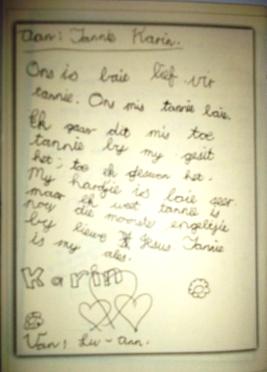 Aan: Tannie Karin.
Ons is baie lief vir
tannie. Ons mis tannie baie.
Ek gaan dit mis toe
tannie by my gesit
het, toe ek geswem het.
My hardjie is baie seer
maar ek weet tannie is
nog die mooiste engeltjie
by liewe Jesus Tannie
is my alles.
Karin
Van: Liu-ann.